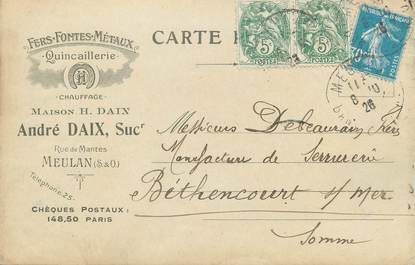 FERS-FONTES-MÉTAUX
Quincaillerie
CHAUFFAGE
MAISON H. DAIX
André DAIX, Sucr
Rue de Mantes
MEULAN (S.&O)
Téléphone:25-
CHÈQUES POSTAUX:
148,50 PARIS
CARTE
5 5
POSTES POSTES
MEU
11
8 10
26
Messieurs Debeaurain Frères
Manufacture de Serrurerie
Béthencourt s/ Mer
Somme